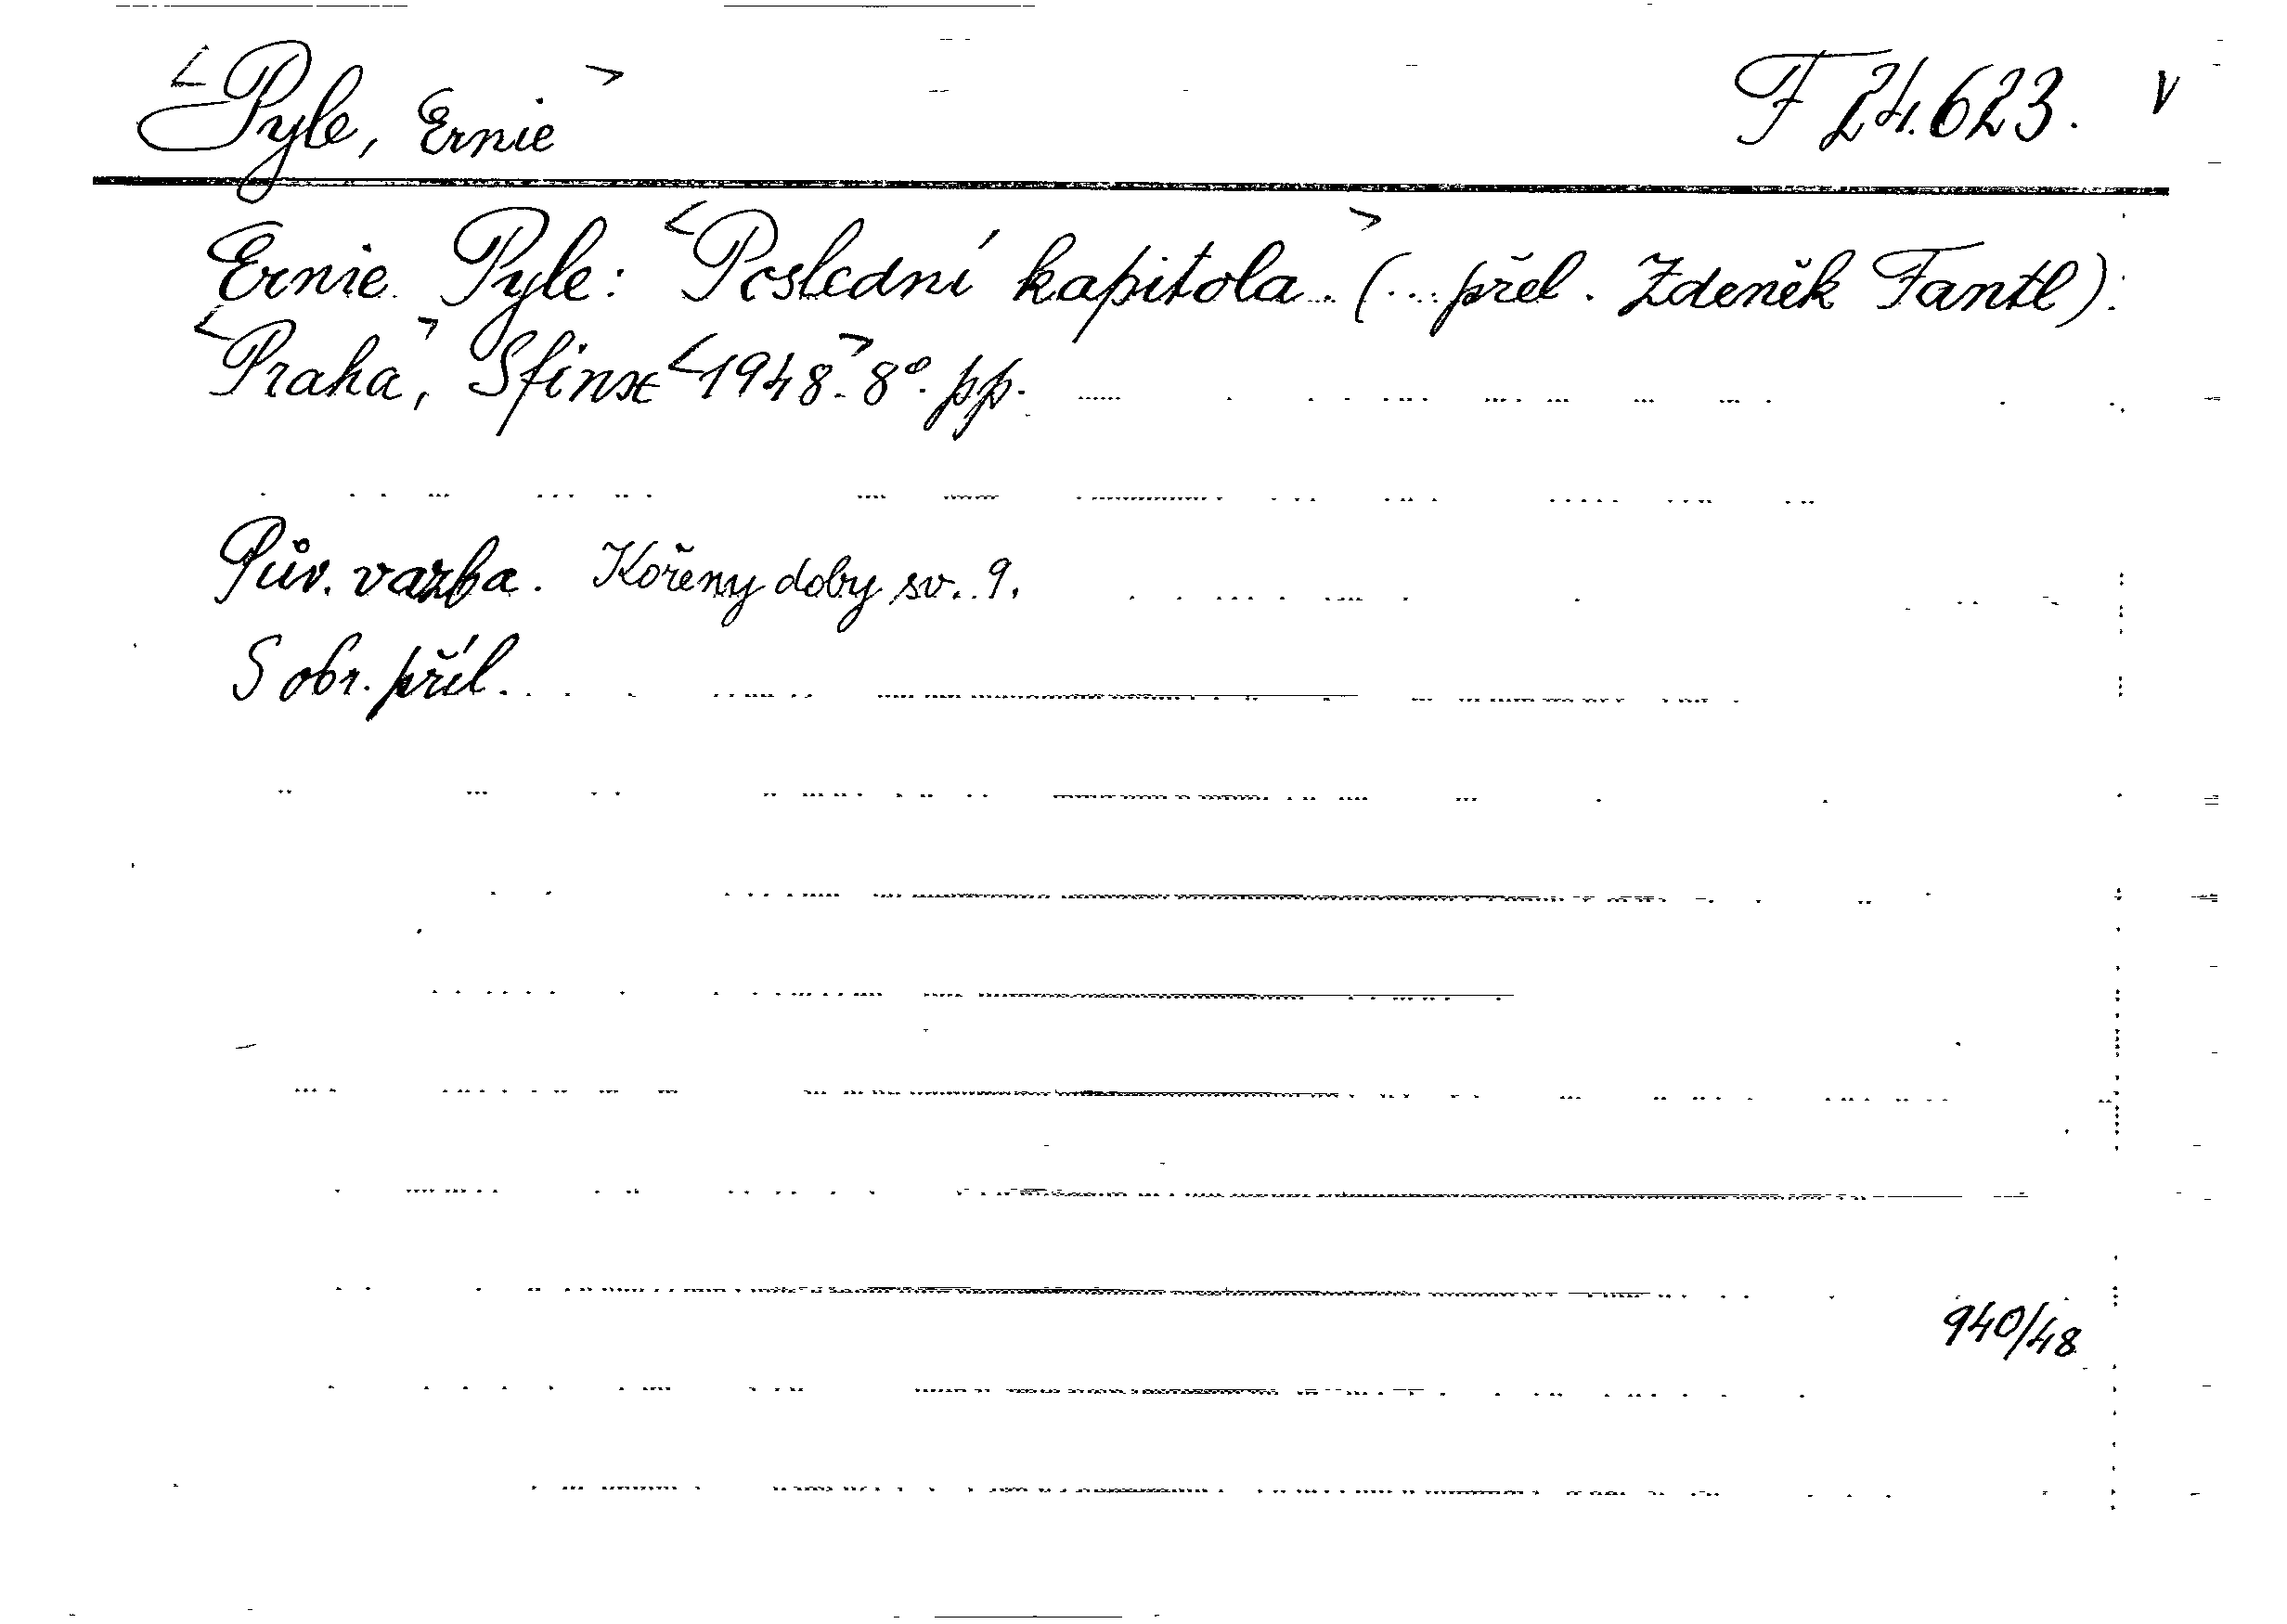 <Pyle, Ernie> F 24.623. V
Ernie Pyle: <Poslední kapitola>.. (... přel. Zdeněk Fantl).
<Praha>, Sfinx <1948>. 8°. pp.
Pův. vazba. Kořeny doby sv. 9.
S obr. příl.
940/48